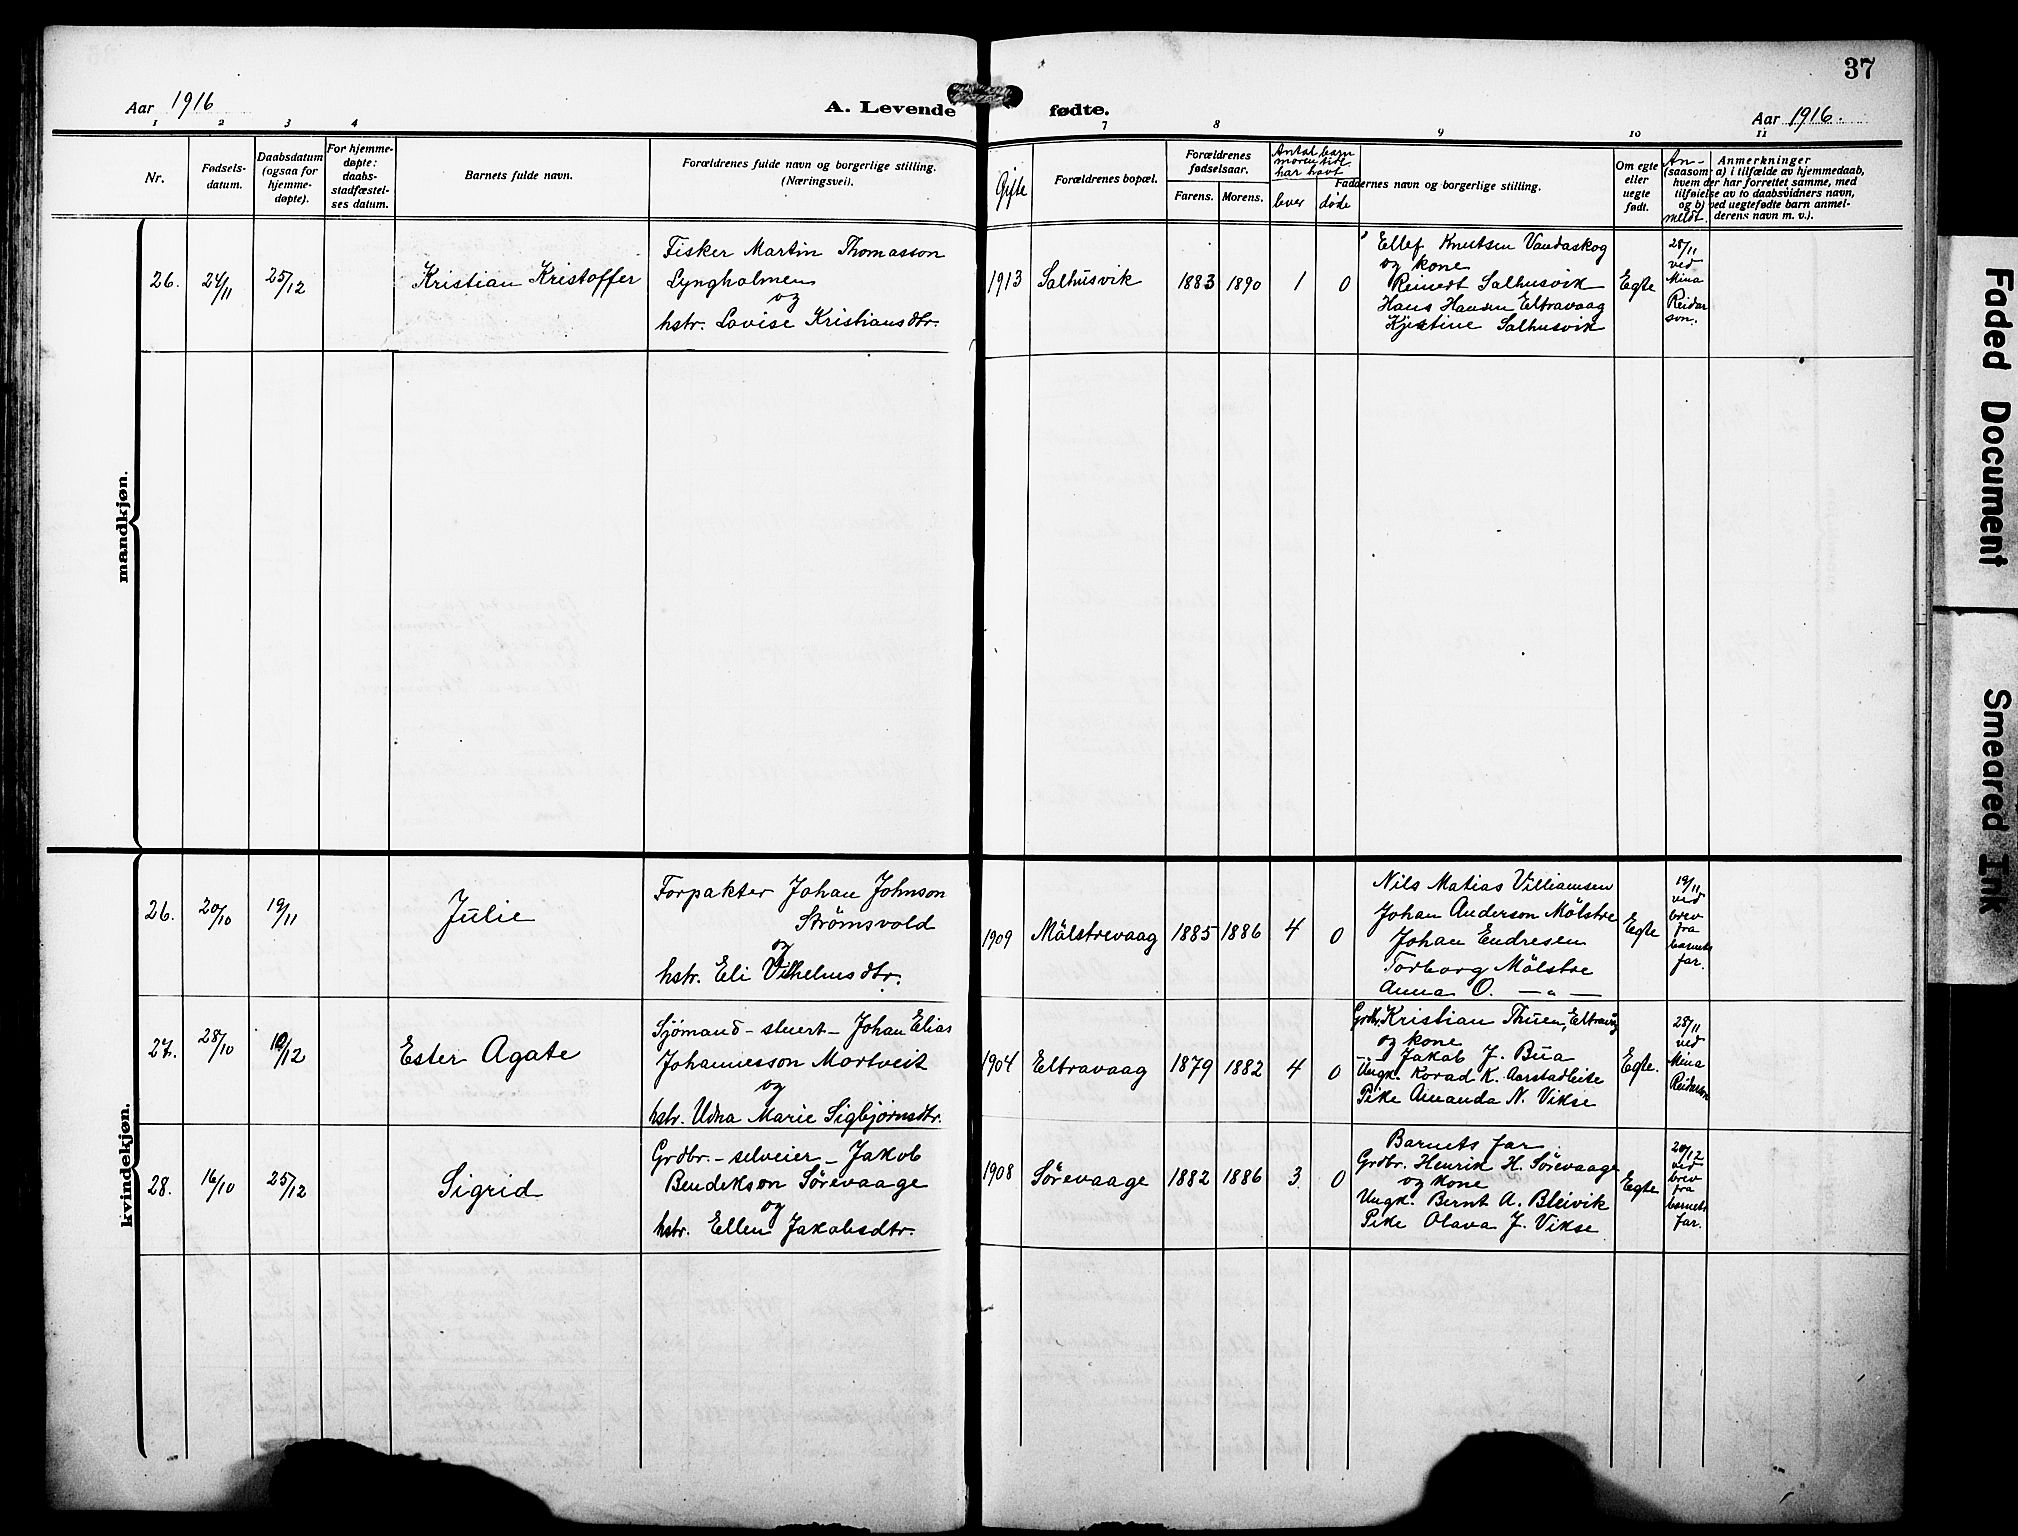 37
Aar 1916
A. Levende fødte.
Aar 1916.
1 2 3 4 7 8 9 10 11
Nr.
Fødsels-
datum.
Daabsdatum
(ogsaa for
hjemme-
døpte).
For hjemme-
døpte:
daabs-
stadfæstel-
ses datum.
Barnets fulde navn.
Forældrenes fulde navn og borgerlige stilling.
(Næringsvei).
Gifte
Forældrenes bopæl.
Forældrenes
fødselsaar.
Farens. Morens.
Antal barn
moren tidl.
har havt
lever døde
Faddernes navn og borgerlige stilling.
Om egte
eller
uegte
født.
An-
meldt.
Anmerkninger
(saasom a) i tilfælde av hjemmedaab,
hvem der har forrettet samme, med
tilføielse av to daabsvidners navn,
og b) ved uegtefødte barn anmel-
derens navn m. v.).
mandkjøn.
26. 24/11 25/12
Kristian Kristoffer
Fisker Martin Thomasson
Lyngholmen
og
hstr. Lovise Kristiansdtr.
1913 Salhusvik 1883 1890 1 0
Ellef Knutsen Vandaskog
og kone
Reinert Salhusvik
Hans Hansen Eltravaag
Kjestine Salhusvik
Egte
28/11
ved
Mina
Reidar
son.
kvindekjøn.
26. 20/10 19/11
Julie
Forpakter Johan Johnson
Strømsvold
og
hstr. Eli Vilhelmsdtr.
1909 Mølstrevaag 1885 1886 4 0
Nils Matias Villiamsen
Johan Anderson Mølstre
Johan Endresen
Torborg Mølstre
Anna O. — " —
Egte
19/11
ved
brev
fra
barnets
far.
27. 28/10 10/12
Ester Agate
Sjømand - stuert - Johan Elias
Johannesson Mortveit
og
hstr. Udna Marie Sigbjørnsdtr.
1904 Eltravaag 1879 1882 4 0
Grdbr. Kristian Thuen, Eltravåg
og kone
- " - Jakob J. Bua
Ungk. Korad K. Aarstadleite
Pike Amanda N. Vikse
Egte.
28/11
ved
Mina
Reidarson
28. 16/10 25/12
Sigrid
Grdbr. - selveier - Jakob
Bendikson Sørevaage
og
hstr. Ellen Jakobsdtr.
1908 Sørevaage 1882 1886 3 0
Barnets far.
Grdbr. Henrik H. Sørevaage
og kone
Ungk. Bernt A. Bleivik
Pike Olava J. Vikse
Egte
20/12
ved
brev
fra
barnets
far.
Faded Document
Smeared Ink